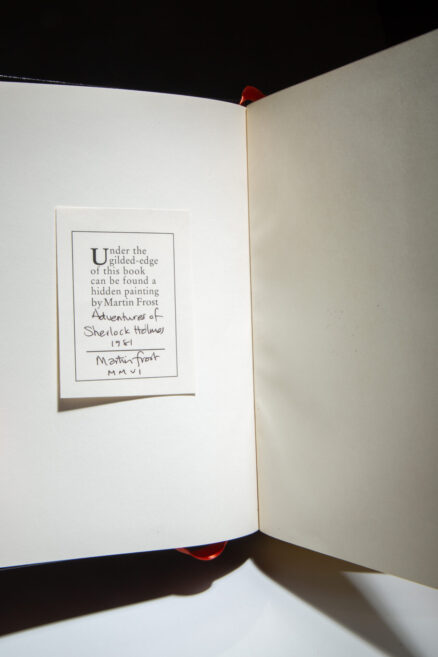 Under the
gilded-edge
of this book
can be found a
hidden painting
by Martin Frost
Adventures of
Sherlock Holmes
1981
Martin Frost
MMVI